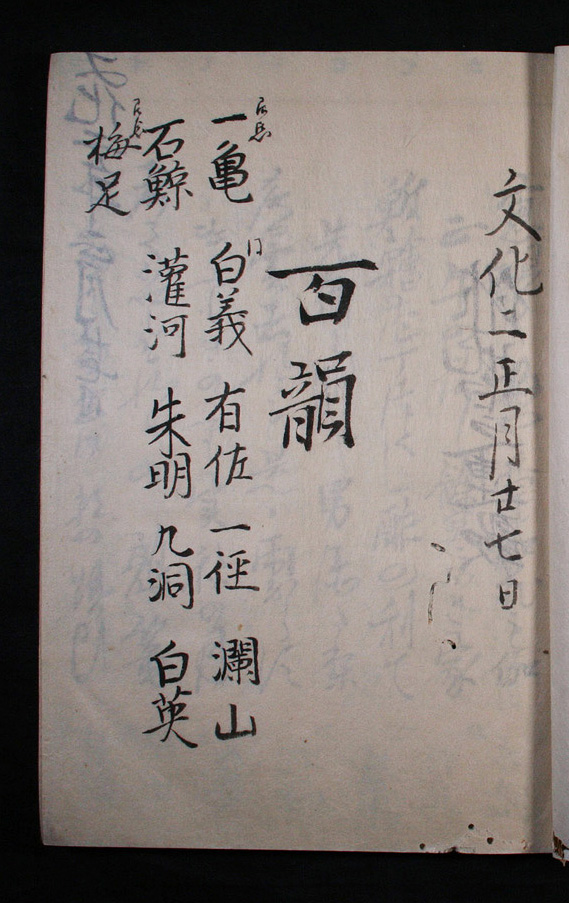 文化二正月廿七日
百韻
一亀 白義 有佐 一径 瀾山
石鯨 灌河 朱明 九洞 白英
梅足